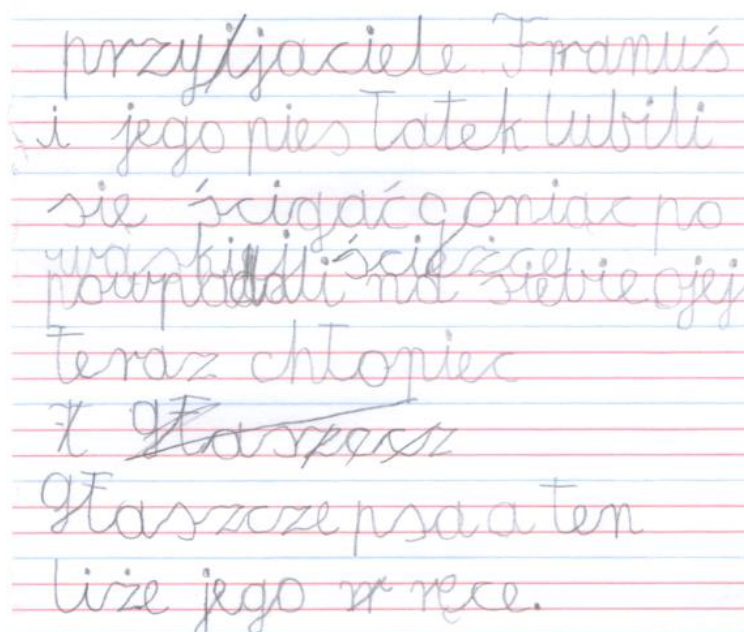 przyjaciele Franuś
i jego pies Łatek lubili
się ścigać goniac po
waskiej ścieżce
powpadali na siebie ojej
teraz chłopiec
głaszcze psa a ten
liże jego ręce.